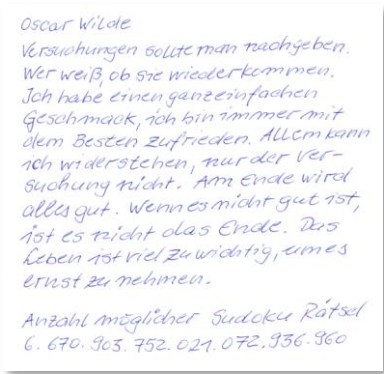 Oscar Wilde
Versuchungen sollte man nachgeben.
Wer weiß, ob sie wiederkommen.
Ich habe einen ganz einfachen
Geschmack, ich bin immer mit
dem Besten zufrieden. Allem kann
ich widerstehen, nur der Ver-
suchung nicht. Am Ende wird
alles gut. Wenn es nicht gut ist,
ist es nicht das Ende. Das
Leben ist viel zu wichtig, um es
ernst zu nehmen.
Anzahl möglicher Sudoku Rätsel
6.670.903.752.021.072.936.960